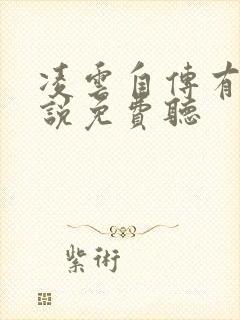 凌雲自傳有
說免費聽
紫術